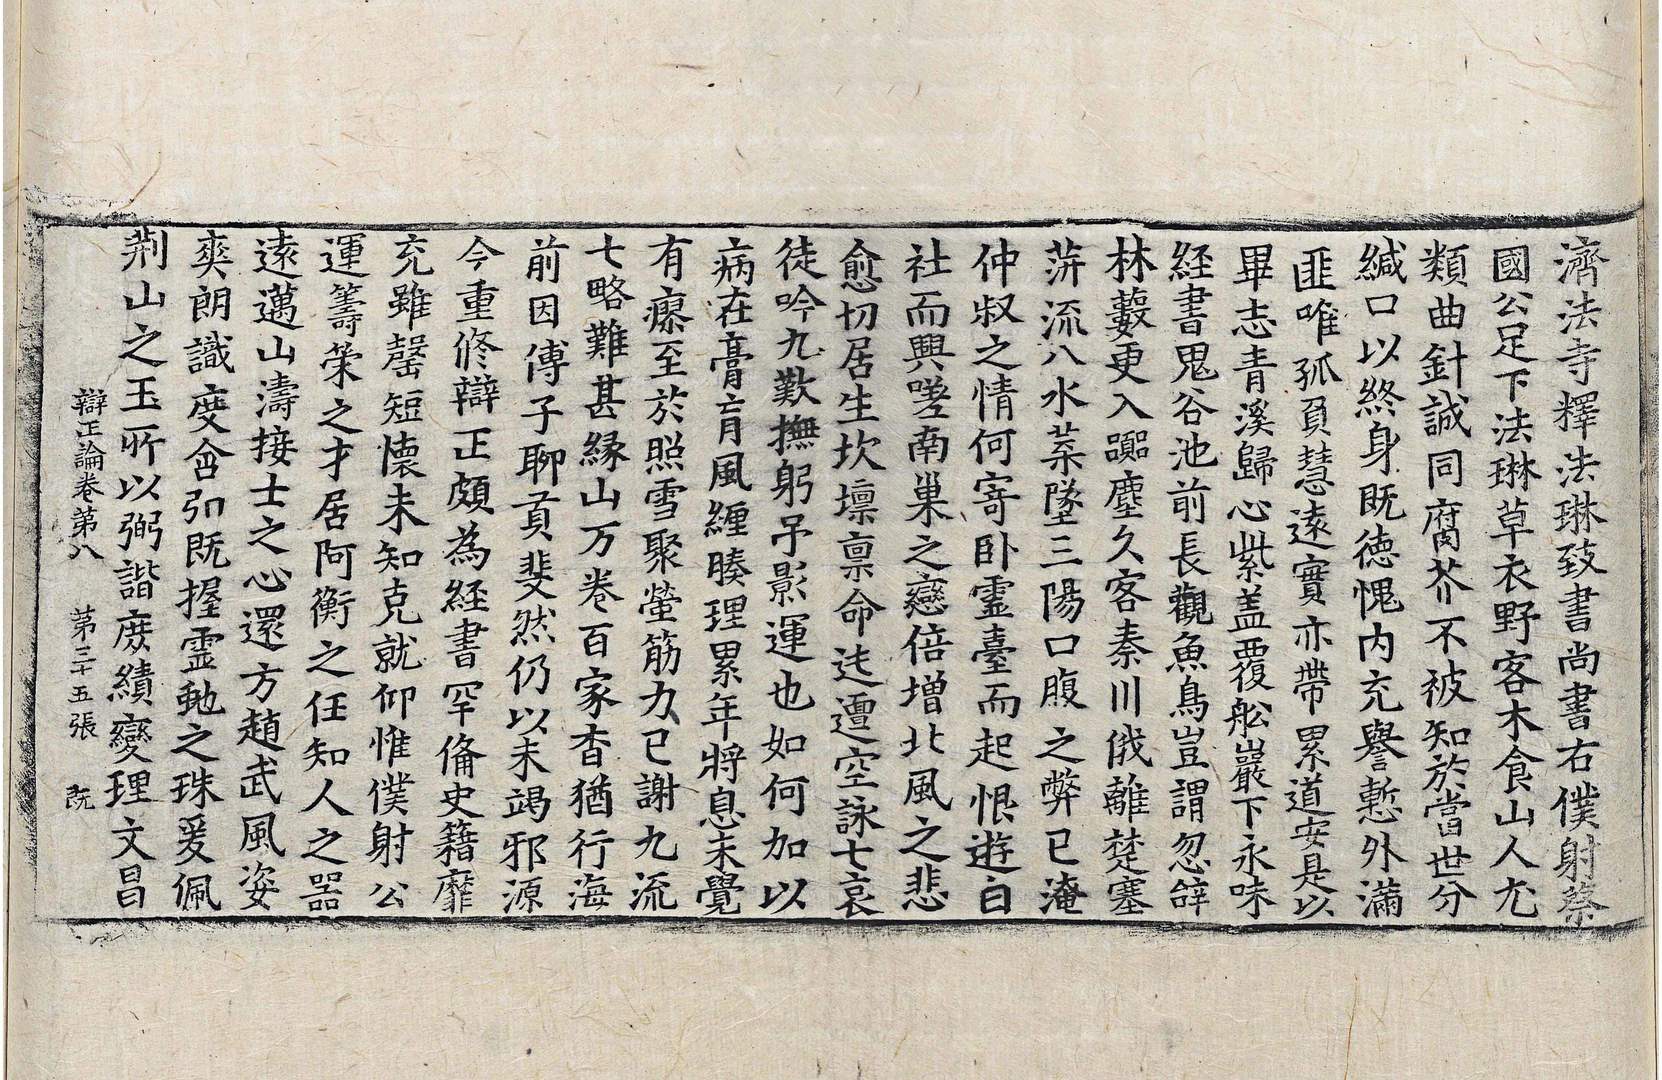 濟法寺釋法琳致書尚書右僕射蔡
國公足下法琳草衣野客木食山人尤
類曲針誠同腐芥不被知於當世分
緘口以終身既德愧内充譽慙外滿
匪唯孤負慧遠實亦帶累道安是以
畢志青溪歸心紫盖覆舩巖下永味
経書鬼谷池前長觀魚鳥豈謂忽辞
林藪更入嚻塵久客秦川俄離楚塞
蓱流八水葉墜三陽口腹之弊已淹
仲叔之情何寄卧靈臺而起恨遊白
社而興嗟南巢之戀倍增北風之悲
愈切居生坎壈禀命迍邅空詠七哀
徒吟九歎撫躬予影運也如何加以
病在膏肓風纏腠理累年將息未覺
有瘳至於照雪聚螢筋力已謝九流
七略難甚縁山万卷百家杳猶行海
前因傅子聊貢斐然仍以未竭邪源
今重修辯正頗為経書罕俻史籍靡
充雖罄短懷未知克就仰惟僕射公
運籌䇿之才居阿衡之任知人之器
遠邁山濤接士之心還方趙武風姿
爽朗識度含弘既握靈虵之珠爰佩
荆山之玉所以弼諧庶績變理文昌
辯正論卷第八　第三十五張　既